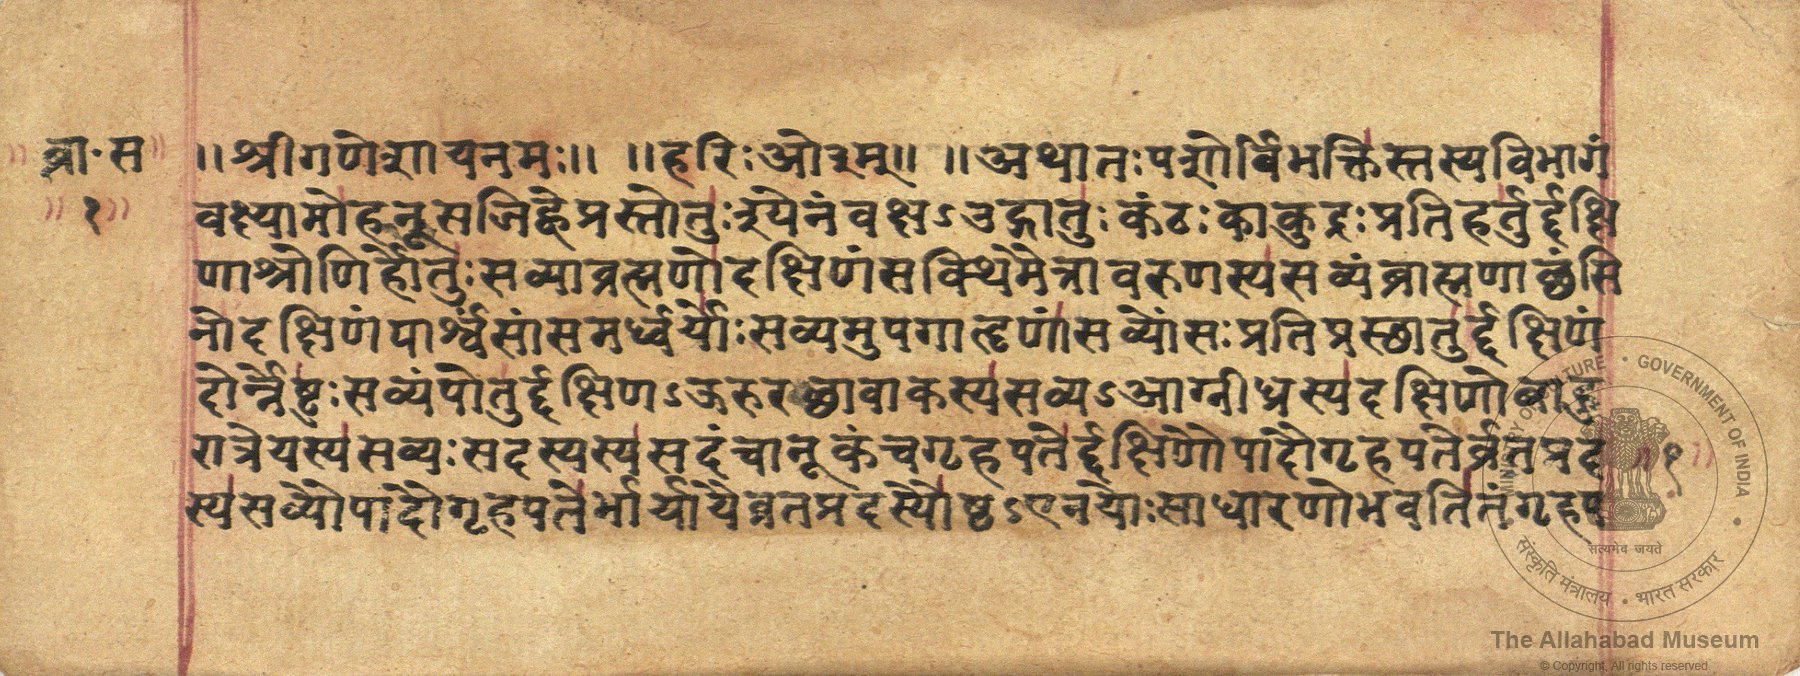 ब्रा॰स
१
॥श्रीगणेशायनमः॥ ॥हरिःओ३म्॥ ॥अथातःपशोर्विभक्तिस्तस्यविभागं
वक्ष्यामोहनूसजिह्वेप्रस्तोतुःश्येनंवक्षऽउद्गातुःकंठःकाकुद्रःप्रतिहर्तुर्द्दक्षि
णाश्रोणिर्होतुःसव्याब्रह्मणोदक्षिणंसक्थिमैत्रावरुणस्यसव्यंब्राह्मणाच्छंसि
नोदक्षिणंपार्श्वंसांसमर्ध्वर्योःसव्यमुपगातॄणांसव्योंसःप्रतिप्रस्छातुर्द्दक्षिणं
दोर्न्नेष्टुःसव्यंपोतुर्द्दक्षिणऽऊरुरच्छावाकस्यसव्यऽआग्नीध्रस्यदक्षिणोबाहु
रात्रेयस्यसव्यःसदस्यस्यसदंचानूकंचगृहपतेर्द्दक्षिणोपादोगृहपतेर्व्रतप्रद
स्यसव्योपादोगृहपतेर्भार्यायैव्रतप्रदस्योष्ठऽएनयोःसाधारणोभवतितंगृहप
१
MINISTRY OF CULTURE • GOVERNMENT OF INDIA
सत्यमेव जयते
संस्कृति मंत्रालय • भारत सरकार
The Allahabad Museum
© Copyright, All rights reserved.